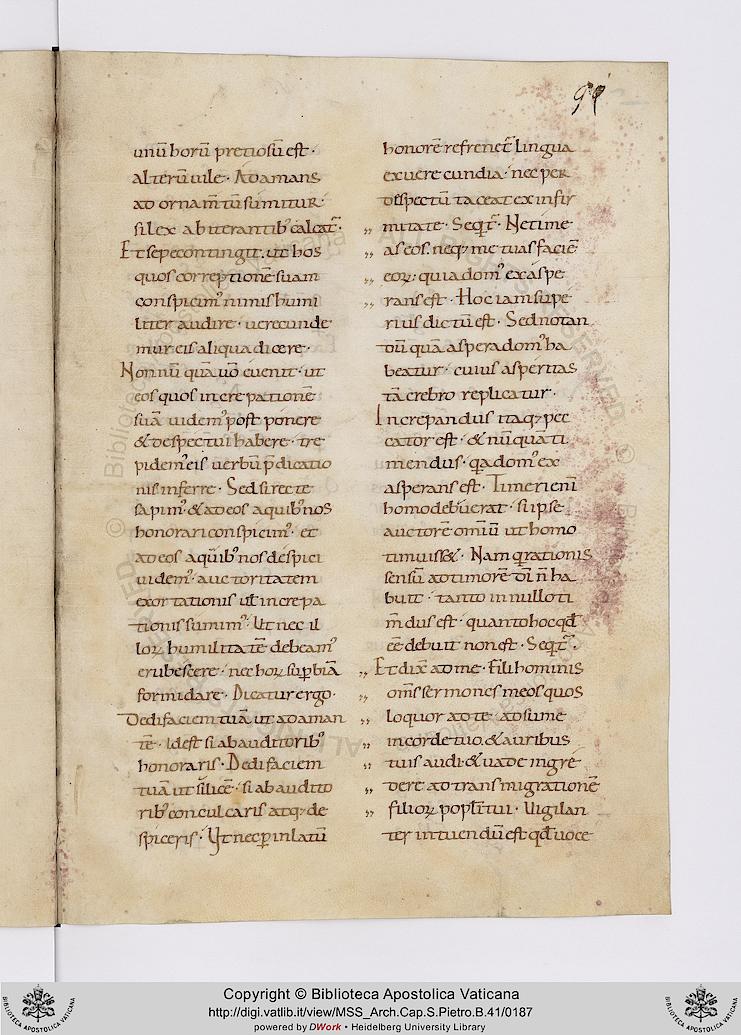 99
unū horū pretiosū est·
alterū uile· Adamans
ad ornam̄tū sumitur·
silex ab iterantib; calcat̄·
Et sepe contingit. ut hos
quos correptionē suam
conspicim; nimis humi
liter audire· uerecunde
mur eis aliqua dicere·
Non nū quā uō euenit· ut
eos quos increpationē
suā uidem; post ponere
& despectui habere· tre
pidem; eis uerbū p̄dicatio
nis inferre· Sed si recte
sapim; & ad eos a quib; nos
honorari conspicim;· et
ad eos a quib; nos despici
uidem;· auctoritatem
exortationis ut̄ increpa
tionis sumim;· Ut nec il
loꝝ humilitatē debeam;
erubescere· nec hoꝝ suꝑbiā
formidare· Dicatur ergo·
Dedi faciem tuā ut adaman
tē· Id est si ab auditorib;
honoraris· Dedi faciem
tuā ut silicē· si ab audito
rib; conculcaris atq; de
spiceris· Ut nec ꝑ inlatū
honorē refrenet̄ lingua
ex uerecundia· nec per
despectū taceat ex infir
„ mitate· Seqt̄· Ne time
„ as eos. neq; me tuas faciē
„ eoꝝ· quia dom; exaspe
„ rans est· Hoc iam supe
rius dictū est· Sed notan
dū quā aspera dom; ha
beatur· cuius asperitas
tā crebro replicatur·
Increpandus itaq; pec
cator est· & nū quā ti
mendus· qa dom; ex
asperans est· Timeri eni
homo debuerat· si ipse
auctorē omiū ut homo
timuiss&· Nam q rationis
sensū ad timorē dī n̄ ha
buit· tanto in nullo ti
m̄dus est· quanto hoc qd̄
eē debuit non est· Seqt̄·
„ Et dix̄ ad me· Fili hominis
„ oms̄ sermones meos quos
„ loquor ad te· adsume
„ in corde tuo. & auribus
„ tuis audi. & uade ingre
„ dere ad transmigrationē
„ filioꝝ popl̄i tui· Uigilan
ter intuendū est qd̄ uoce
Copyright © Biblioteca Apostolica Vaticana
http://digi.vatlib.it/view/MSS_Arch.Cap.S.Pietro.B.41/0187
powered by DWork • Heidelberg University Library